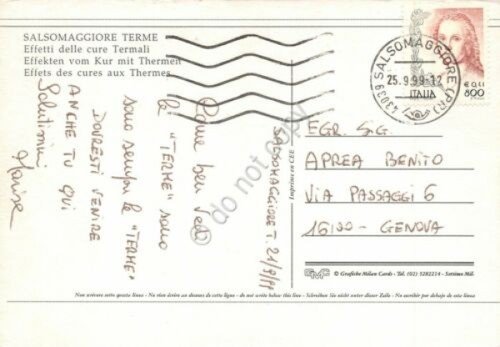 SALSOMAGGIORE TERME
Effetti delle cure Termali
Effekten vom Kur mit Thermen
Effets des cures aux Thermes
SALSOMAGGIORE T. 21/9/99
Come ben vedi
le "TERME" sono
sono sempre le "TERME"
DOVRESTI VENIRE
ANCHE TU QUI
Salutissimi
Marisa
43039 SALSOMAGGIORE (PR)
25.9.99-12
ITALIA
€ 0,41
800
EGR. SIG.
APREA BENITO
VIA PASSAGGI 6
16100 - GENOVA
Imprimé en CEE
GMC
© Grafiche Milan Cards - Tel. (02) 3282214 - Settimo Mil.
Non scrivere sotto questa linea - Ne rien écrire au dessous de cette ligne - do not write below this line - Schreiben Sie nicht unter dieser Zeile - No escribir por debajo de esta linea
do not copy